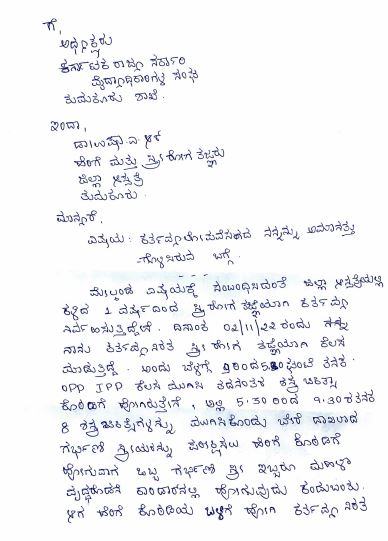 ಗೆ,
ಅಧ್ಯಕ್ಷರು
ಕರ್ನಾಟಕ ರಾಜ್ಯ ಸರ್ಕಾರಿ
ವೈದ್ಯಾಧಿಕಾರಿಗಳ ಸಂಘ
ತುಮಕೂರು ಶಾಖೆ.
ಇಂದಾ,
ಡಾ||ಉಷಾ.ಎ.ಆರ್
ಹೆರಿಗೆ ಮತ್ತು ಸ್ತ್ರೀರೋಗ ತಜ್ಞರು
ಜಿಲ್ಲಾ ಆಸ್ಪತ್ರೆ
ತುಮಕೂರು.
ಮಾನ್ಯರೆ,
ವಿಷಯ: ನನ್ನನ್ನು ಅಮಾನತ್ತು
ಗೊಳಿಸಿರುವ ಬಗ್ಗೆ.
ಮೇಲ್ಕಂಡ ವಿಷಯಕ್ಕೆ ಸಂಬಂಧಿಸಿದಂತೆ ಜಿಲ್ಲಾ ಆಸ್ಪತ್ರೆಯಲ್ಲಿ
ಕಳೆದ 1 ವರ್ಷದಿಂದ ಸ್ತ್ರೀರೋಗ ತಜ್ಞೆಯಾಗಿ ಕರ್ತವ್ಯ
ನಿರ್ವಹಿಸುತ್ತಿದ್ದೇನೆ. ದಿನಾಂಕ 02/11/22 ರಂದು
ನಾನು ಕರ್ತವ್ಯನಿರತ ಸ್ತ್ರೀ ರೋಗ ತಜ್ಞೆಯಾಗಿ ಕೆಲಸ
ಮಾಡುತ್ತಿದ್ದೆ. ಅಂದು ಬೆಳಿಗ್ಗೆ ಘಂಟೆ ತನಕ
OPD IPD ಕೆಲಸ ಮುಗಿಸಿ ತದನಂತರ ಶಸ್ತ್ರ ಚಿಕಿತ್ಸಾ
ಕೊಠಡಿಗೆ ಹೋಗಿರುತ್ತೇನೆ, ಅಲ್ಲಿ 5.30 ರಿಂದ 9.30 ರ ತನಕ
8 ಶಸ್ತ್ರಚಿಕಿತ್ಸೆಗಳನ್ನು ಮುಗಿಸಿಕೊಂಡು ಬೇರೆ ದಾಖಲಾದ
ಗರ್ಭಿಣಿ ಸ್ತ್ರೀಯರನ್ನು ಪರೀಕ್ಷಿಸಲು ಹೆರಿಗೆ ಕೊಠಡಿಗೆ
ಹೋಗುವಾಗ ಒಬ್ಬ ಗರ್ಭಿಣಿ ಸ್ತ್ರೀ ಇಬ್ಬರೂ ಮಹಿಳಾ
ವೃದ್ಧರೊಡನೆ ಕಾರಿಡಾರನಲ್ಲಿ ಹೋಗುವುದು ಕಂಡುಬಂತು.
ಆಗ ಹೆರಿಗೆ ಕೊಠಡಿಯ ಬಳಿಗೆ ಹೋಗಿ ಕರ್ತವ್ಯ ನಿರತ